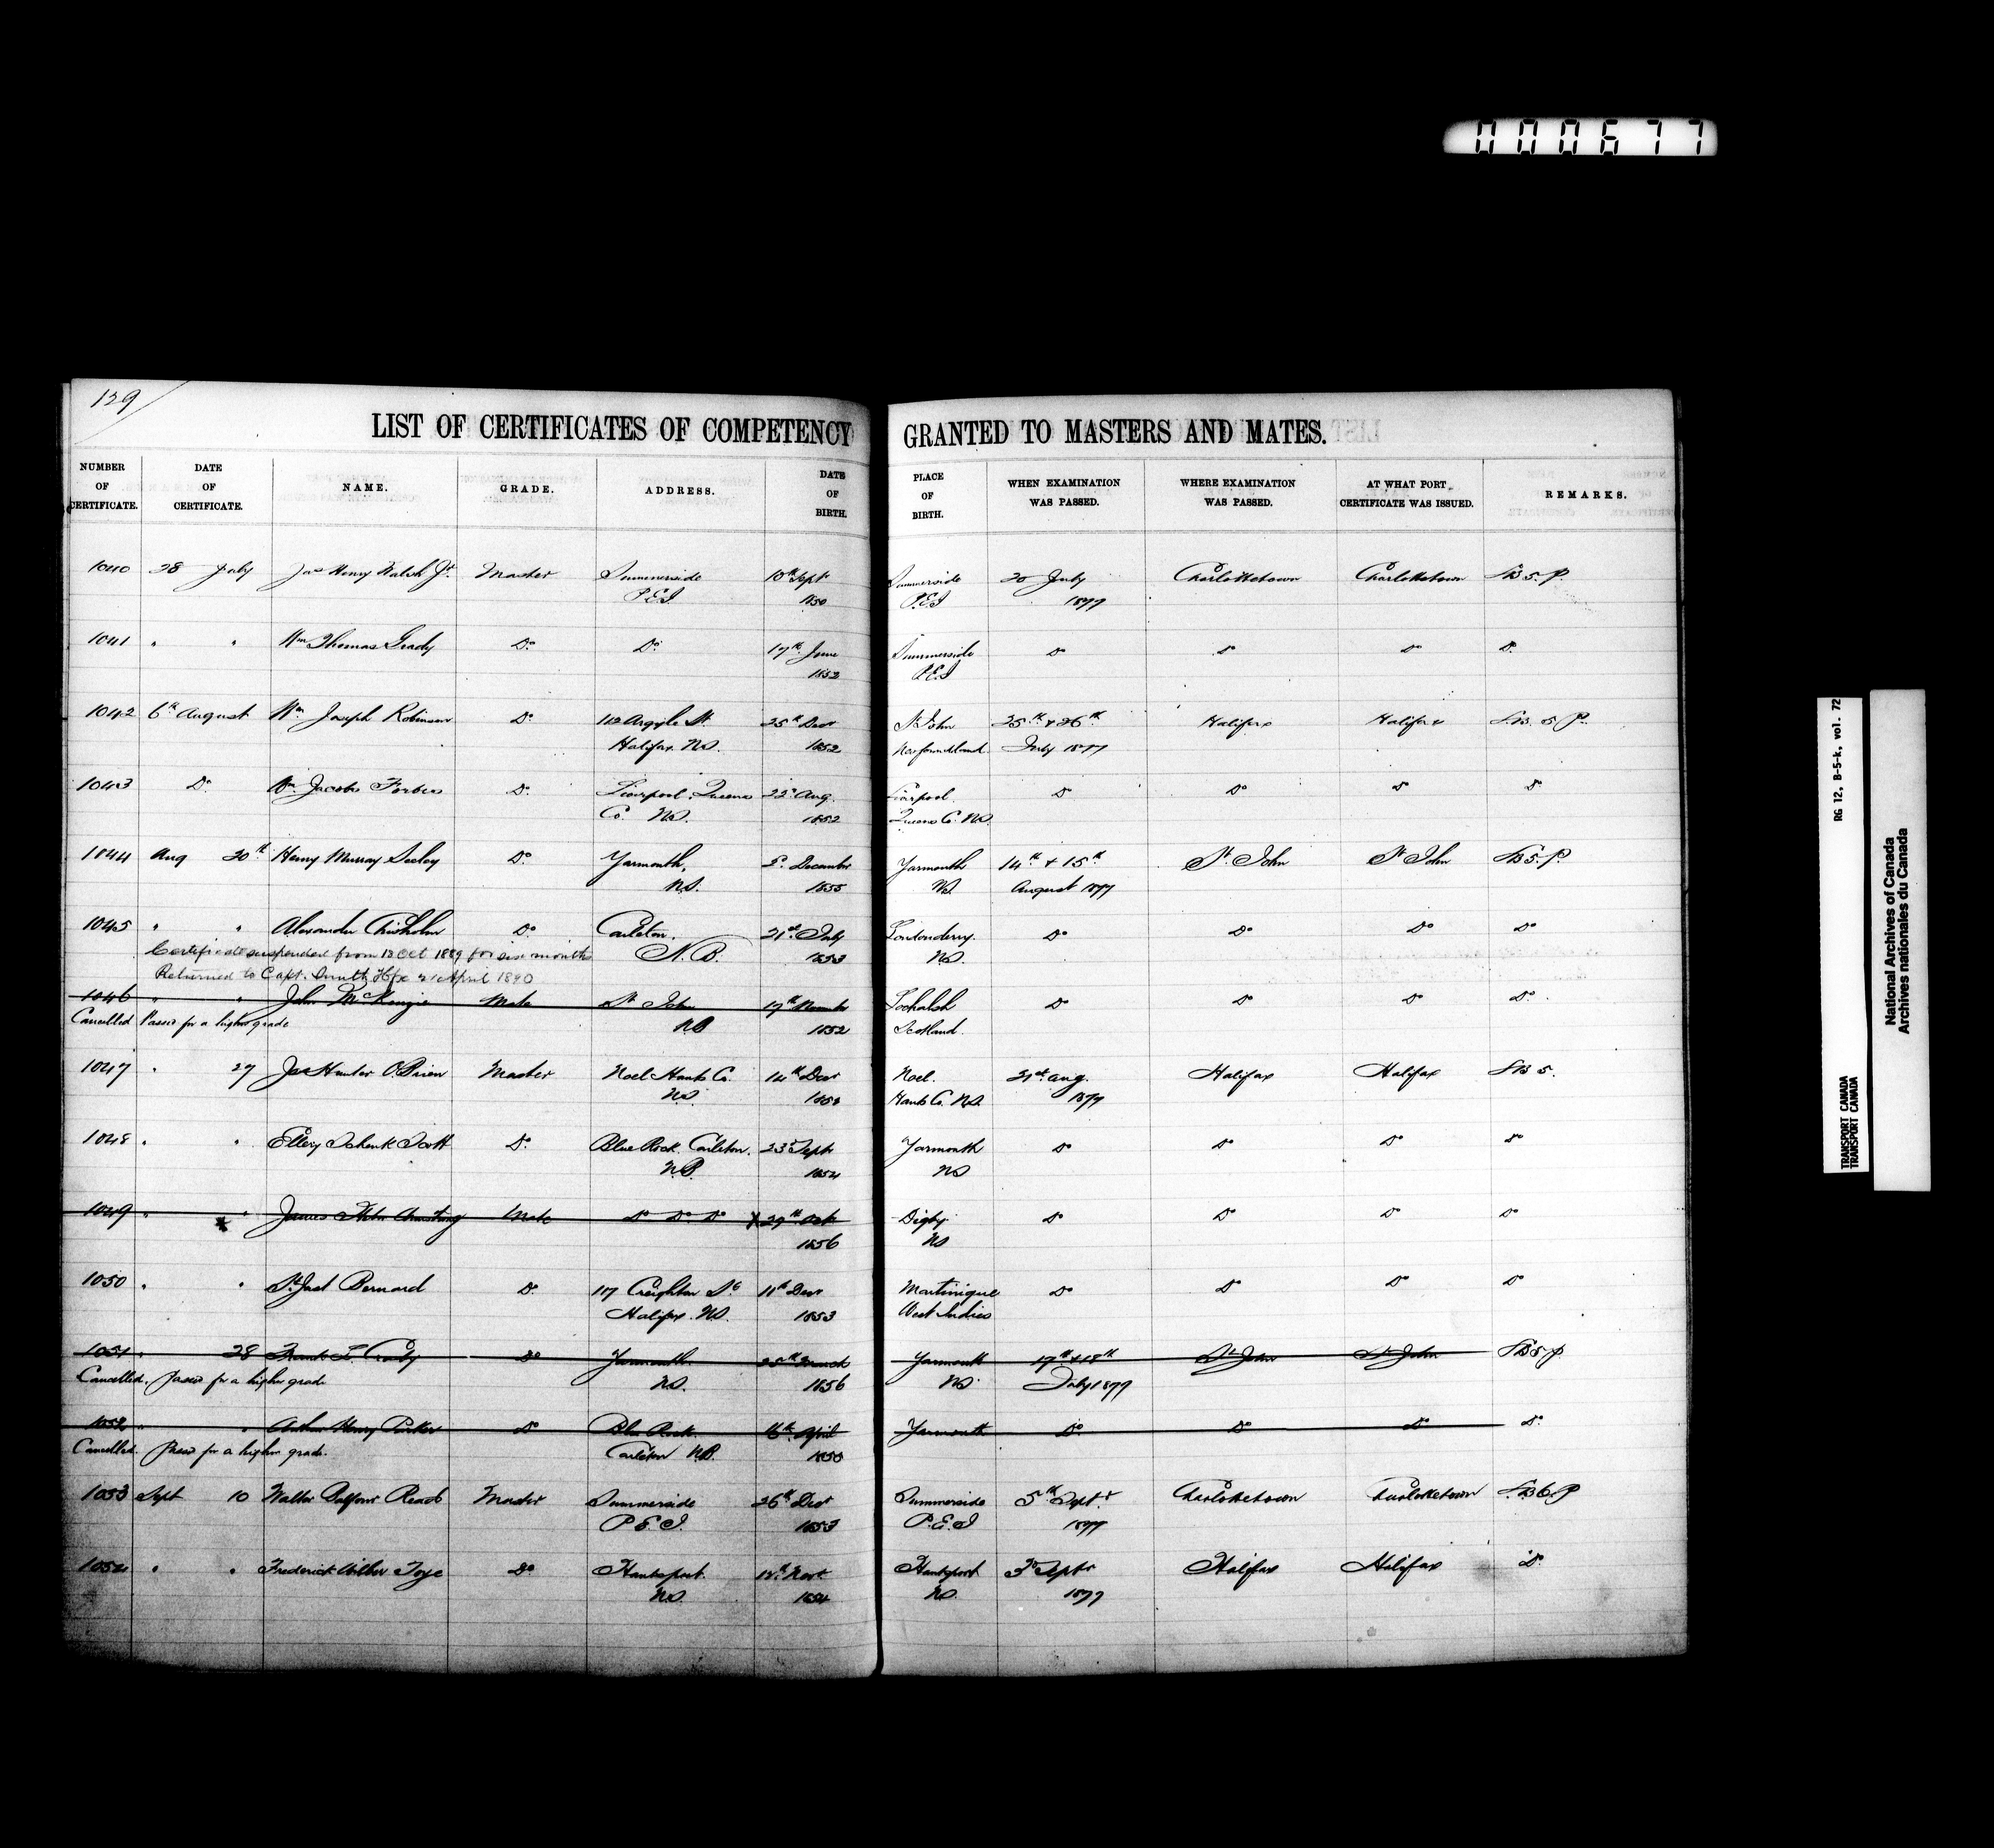 000677
129
LIST OF CERTIFICATES OF COMPETENCY GRANTED TO MASTERS AND MATES.
NUMBER OF CERTIFICATE. DATE OF CERTIFICATE. NAME. GRADE. ADDRESS. DATE OF BIRTH. PLACE OF BIRTH. WHEN EXAMINATION WAS PASSED. WHERE EXAMINATION WAS PASSED. AT WHAT PORT CERTIFICATE WAS ISSUED. REMARKS.
1040 28 July Jas Henry Walsh Jr. Master Summerside 10th Sept Summerside 20 July Charlottetown Charlottetown
P.E.I 1850 P.E.I 1877
1041 " " Wm Thomas Grady Do Do 17th June Summerside Do Do Do Do
1852 P.E.I
1042 6th August Wm Joseph Robinson Do 112 Argyle St. 25th Decr St John 25th & 26th Halifax Halifax
Halifax N.S. 1852 Newfoundland July 1877
1043 Do Wm Jacobs Forbes Do Liverpool, Queens 22d Aug. Liverpool Do Do Do Do
Co. N.S. 1852 Queens Co. N.S.
1044 Aug 20th Henry Murray Seeley Do Yarmouth, 5th December Yarmouth 14th & 15th St. John St John
N.S. 1855 N.S. August 1877
1045 " " Alexander Chisholm Do Carleton. 21st July Londonderry. Do Do Do Do
Certificate suspended from 12 Oct 1889 for six months N.B. 1853 N.S.
Returned to Capt. Smith Hfx 21 April 1890
1046 " " John McKenzie Mate St John 17th Lochalsh Do Do Do Do
Cancelled Passed for a higher grade N.B 1852 Scotland.
1047 " 27 Jas Hunter O'Brien Master Noel Hants Co. 14th Decr Noel. 21st Aug. Halifax Halifax
N.S. Hants Co. N.S. 1877
1048 " " Ellery Schenk Scott Do Blue Rock. Carleton. 23d Sept Yarmouth Do Do Do Do
N.B. 1854 NS
1049 " " James John Armstrong Mate Do Do Do X 29th Oct Digby Do Do Do Do
1856 NS
1050 " " St. Just Bernard Do 117 Creighton St 11th Decr Martinique Do Do Do Do
Halifax. N.S. 1853 West Indies
1051 " 28 Frank L. Crosby Do Yarmouth. 25th March Yarmouth 17th & 18th St John St John
Cancelled. Passed for a higher grade N.S. 1856 NS July 1877
1052 " " Arthur Henry Parker Do Blue Rock. 16th April Yarmouth Do Do Do Do
Cancelled. Passed for a higher grade. Carleton N.B. 1850
1053 Sept 10 Walter Balfour Reads Master Summerside 26th Decr Summerside 5th Sept. Charlottetown Charlottetown
P.E.I. 1853 P.E.I 1877
1054 " " Frederick Wilber Toye Do Hantsport. 12th Novr Hantsport 3d Sept Halifax Halifax Do
N.S. 1854 N.S. 1877
RG 12, B-5-k, vol. 72
TRANSPORT CANADA
TRANSPORT CANADA
National Archives of Canada
Archives nationales du Canada